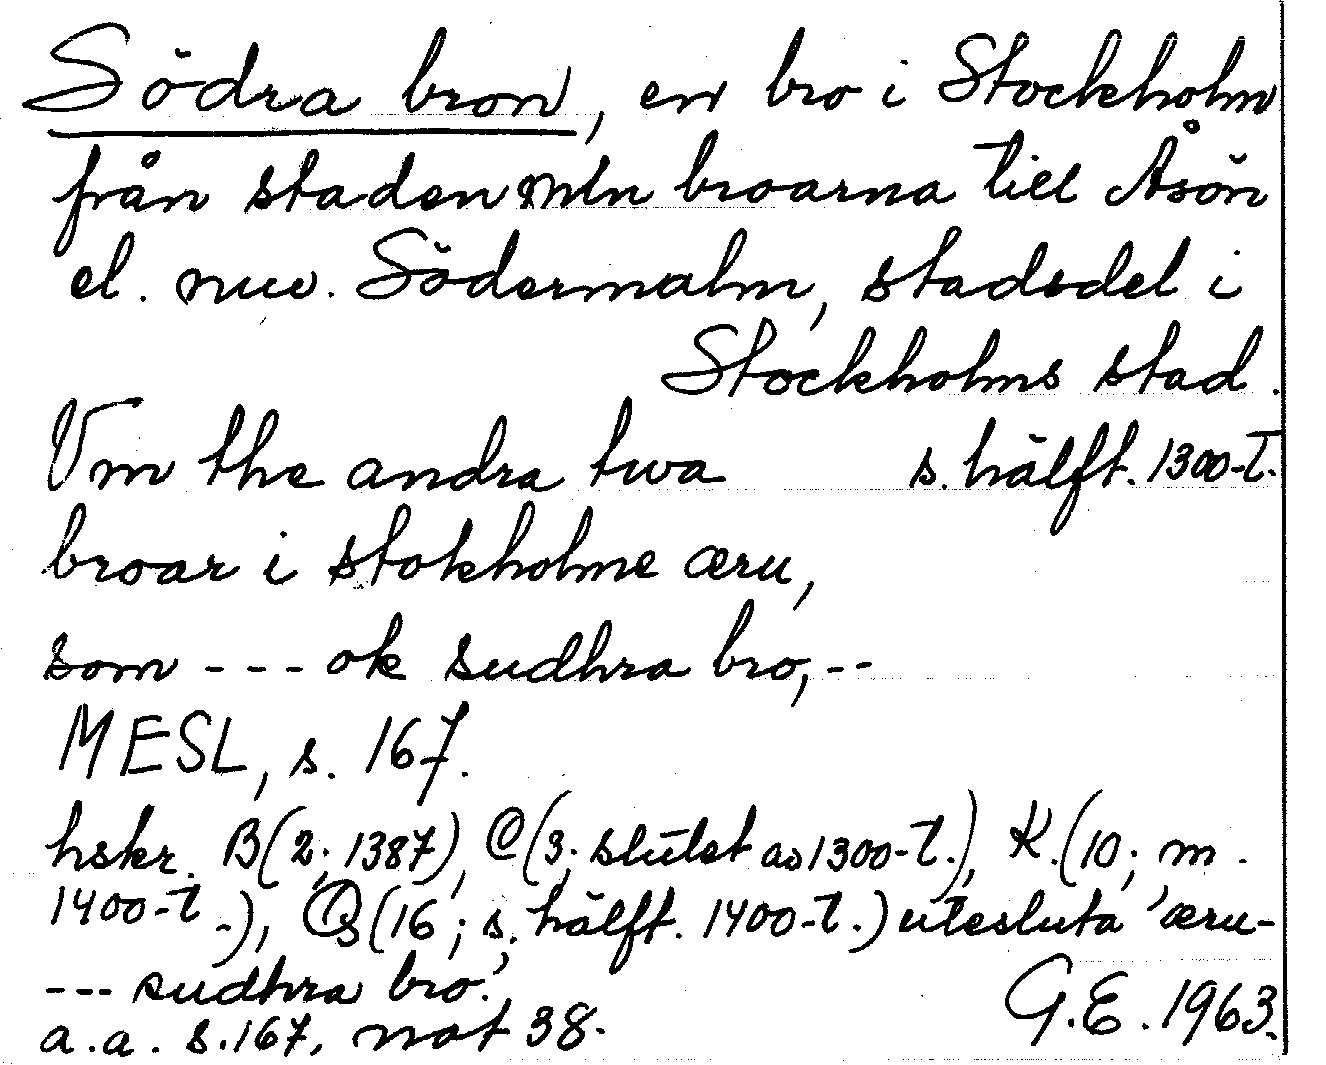 Södra bron, en bro i Stockholm
från staden mln broarna till Åsön
el. nuv. Södermalm, stadsdel i
Stockholms stad.
Vm the andra twa s. hälft. 1300-t.
broar i stokholme æru,
som --- ok sudhra bro, --
MESL, s. 167.
hskr. B (2; 1387), C (3; slutet av 1300-t.), K. (10; m.
1400-t.), Q (16; s. hälft. 1400-t.) utesluta 'æru-
--- sudhra bro.'
a.a. s. 167, not 38. G.E. 1963.